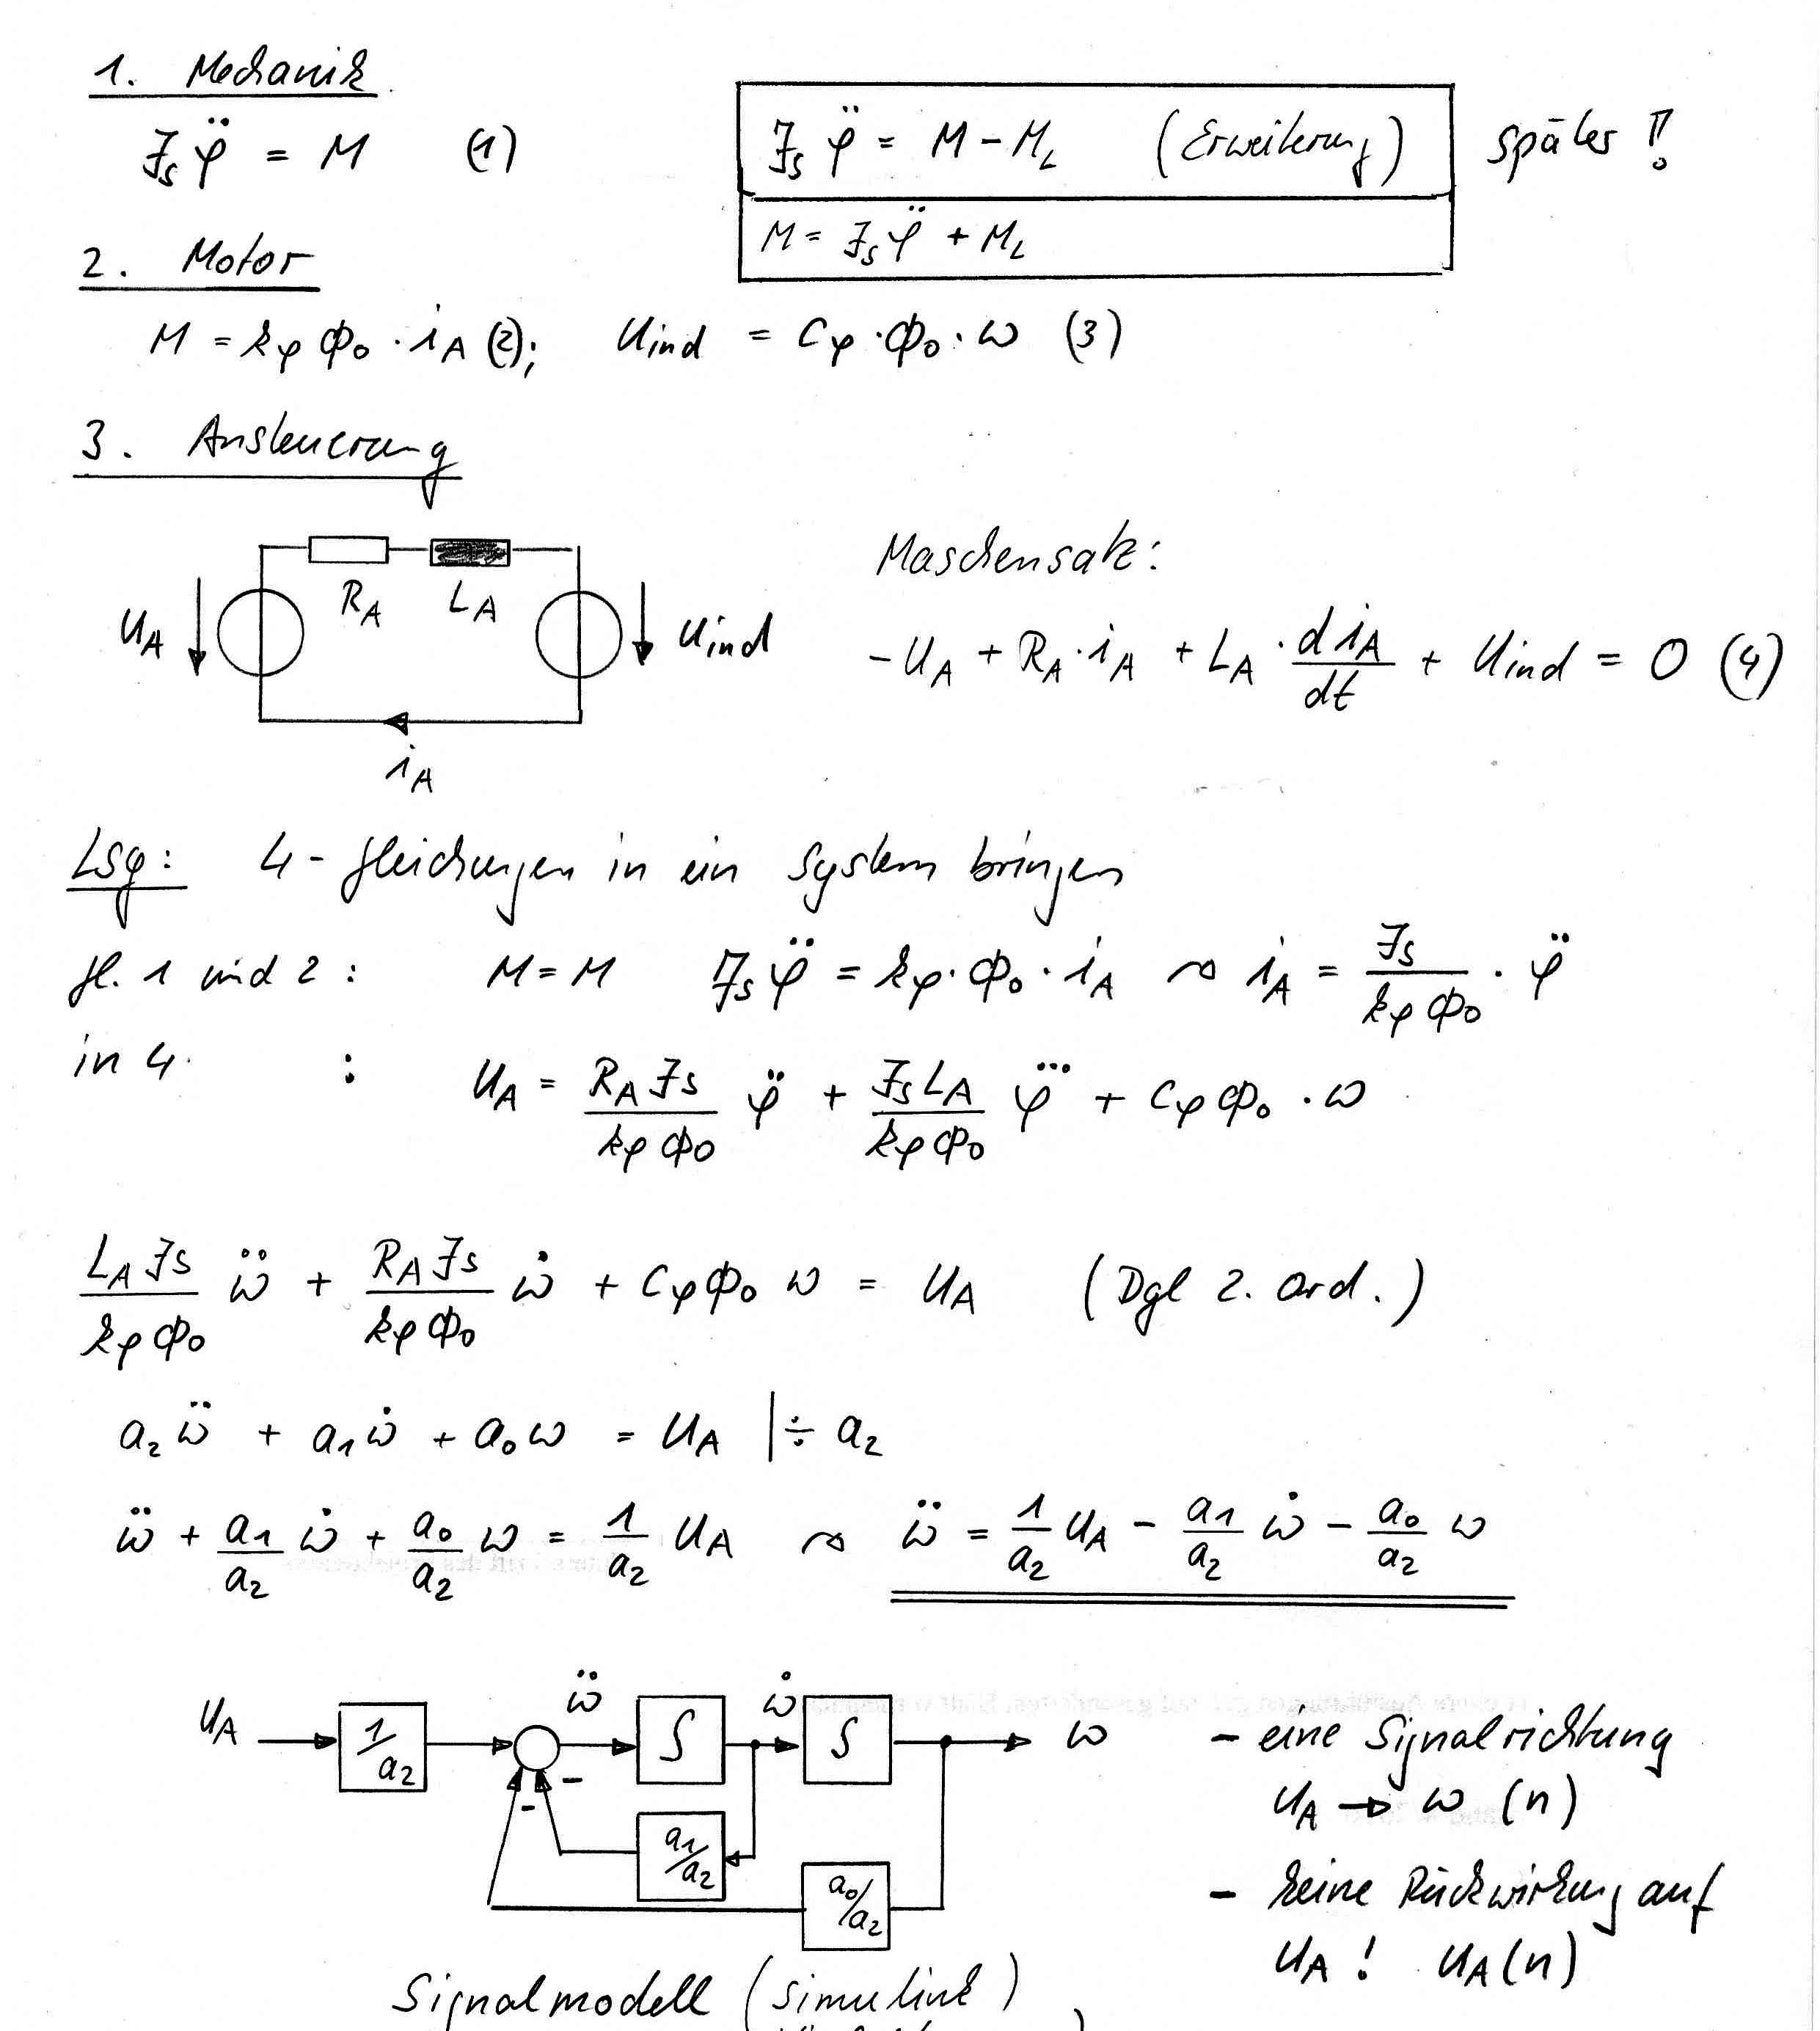 1. Mechanik
J_s φ̈ = M (1)
J_s φ̈ = M - M_L (Erweiterung) später !!
M = J_s φ̈ + M_L
2. Motor
M = k_φ Φ_0 · i_A (2); U_ind = c_φ · Φ_0 · ω (3)
3. Ansteuerung
R_A L_A
U_A U_ind
i_A
Maschensatz:
-U_A + R_A · i_A + L_A · di_A/dt + U_ind = 0 (4)
Lsg: 4 - Gleichungen in ein System bringen
Gl. 1 und 2 : M = M J_s φ̈ = k_φ · Φ_0 · i_A ⤳ i_A = J_s/(k_φ Φ_0) · φ̈
in 4. : U_A = (R_A J_s)/(k_φ Φ_0) φ̈ + (J_s L_A)/(k_φ Φ_0) φ⃛ + c_φ Φ_0 · ω
(L_A J_s)/(k_φ Φ_0) ω̈ + (R_A J_s)/(k_φ Φ_0) ω̇ + c_φ Φ_0 ω = U_A (Dgl 2. Ord.)
a_2 ω̈ + a_1 ω̇ + a_0 ω = U_A | ÷ a_2
ω̈ + a_1/a_2 ω̇ + a_0/a_2 ω = 1/a_2 U_A ⤳ ω̈ = 1/a_2 U_A - a_1/a_2 ω̇ - a_0/a_2 ω
U_A 1/a_2 ω̈ ∫ ω̇ ∫ ω
- -
a_1/a_2
a_0/a_2
- eine Signalrichtung
U_A → ω (n)
- keine Rückwirkung auf
U_A ! U_A (n)
Signalmodell (Simulink)